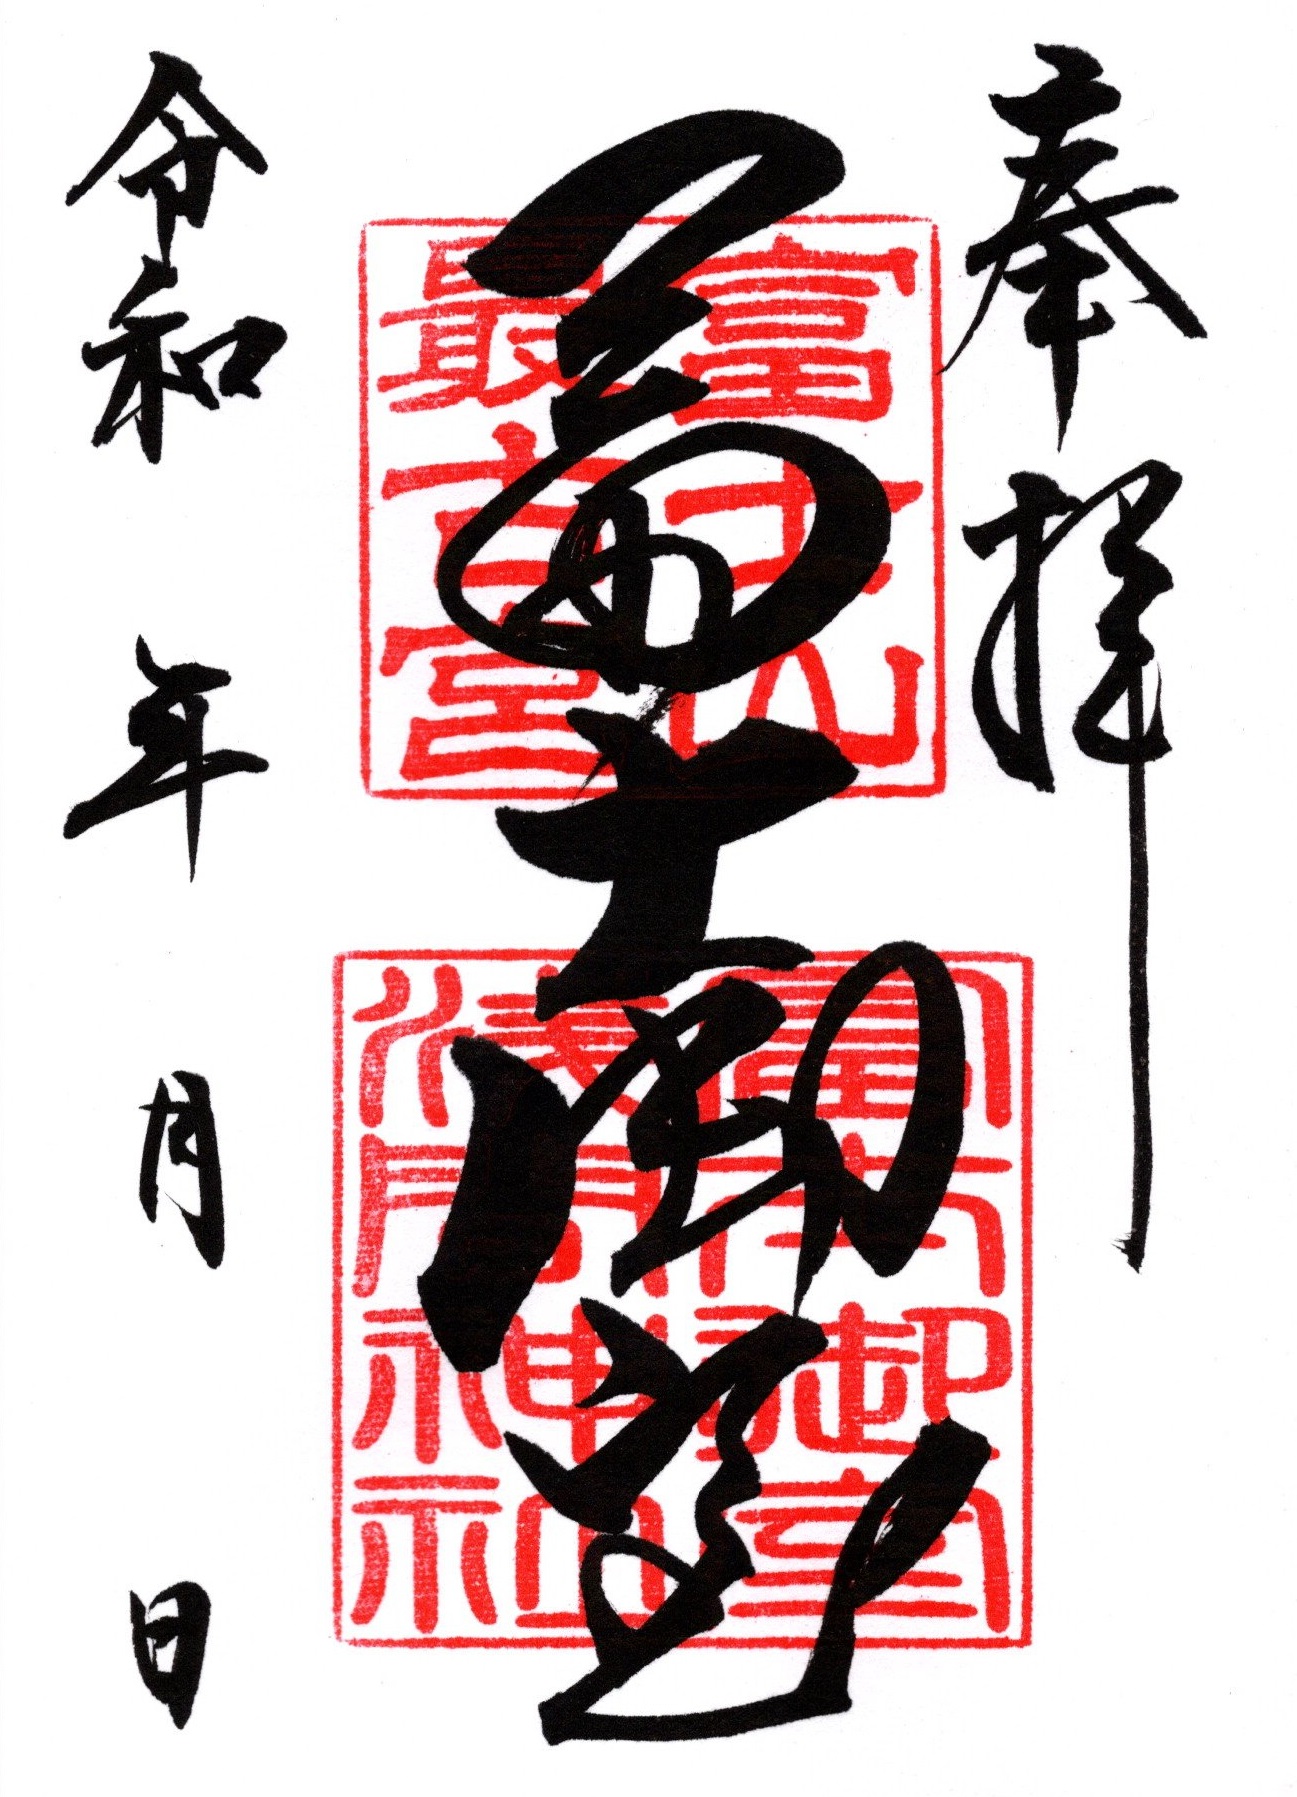 奉拝
富士御室
富士山
最古宮
富士御室
浅間神社
令和 年 月 日